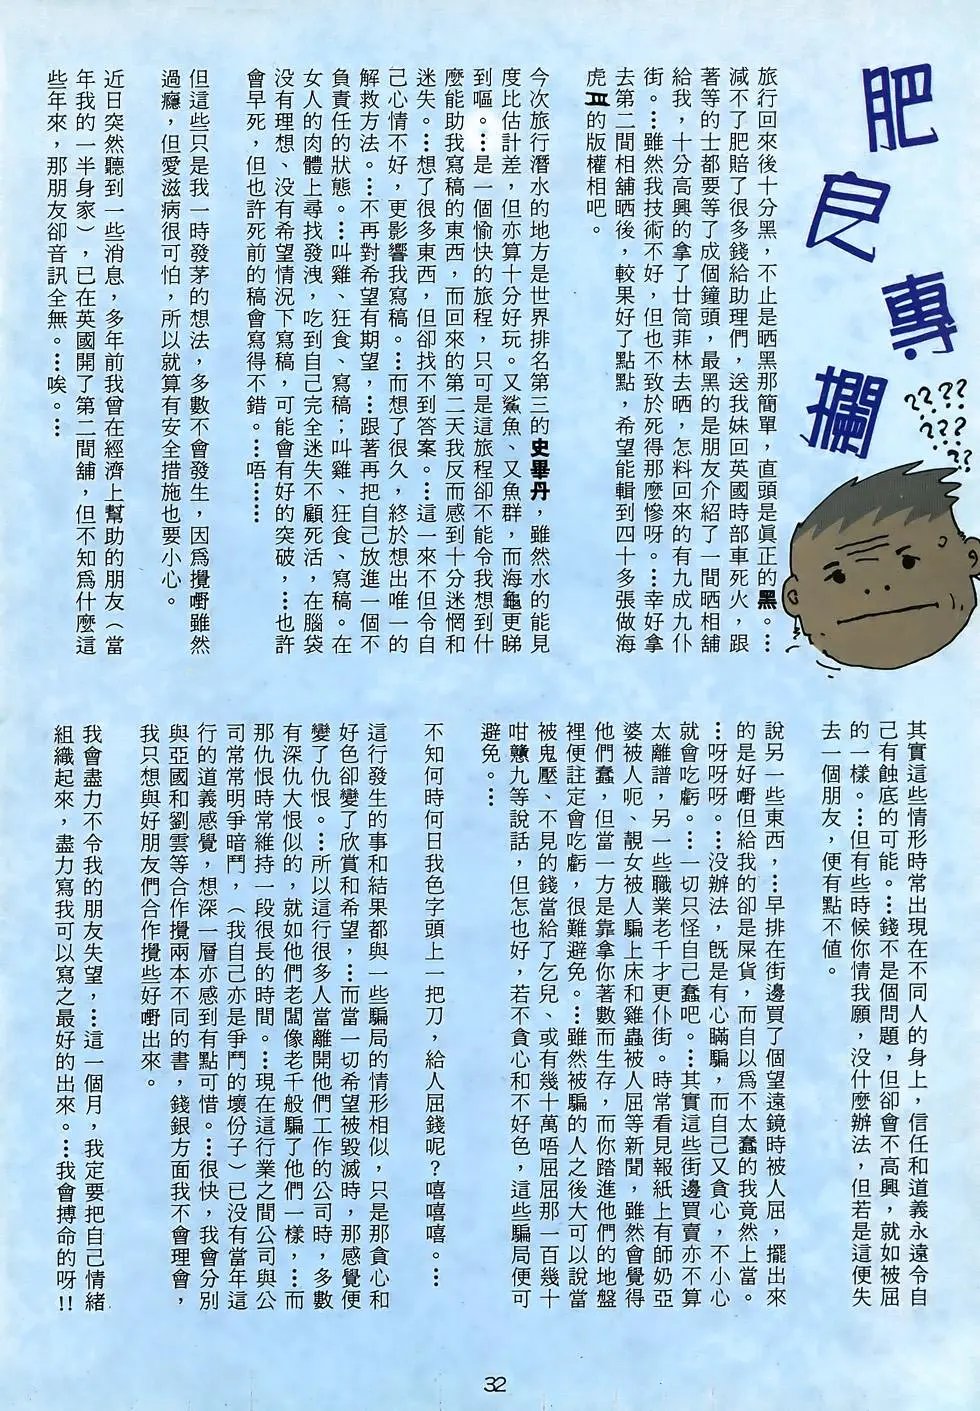 肥良專欄
????
???
??
旅行回來後十分黑，不止是晒黑那簡單，直頭是眞正的黑。…
減不了肥賠了很多錢給助理們，送我妹回英國時部車死火，跟
著等的士都要等了成個鐘頭，最黑的是朋友介紹了一間晒相舖
給我，十分高興的拿了廿筒菲林去晒，怎料回來的有九成九仆
街。…雖然我技術不好，但也不致於死得那麼慘呀。…幸好拿
去第二間相舖晒後，較果好了點點，希望能輯到四十多張做海
虎Ⅲ的版權相吧。
今次旅行潛水的地方是世界排名第三的史畢丹，雖然水的能見
度比估計差，但亦算十分好玩。又鯊魚、又魚群，而海龜更睇
到嘔。…是一個愉快的旅程，只可是這旅程卻不能令我想到什
麼能助我寫稿的東西，而回來的第二天我反而感到十分迷惘和
迷失。…想了很多東西，但卻找不到答案。…這一來不但令自
己心情不好，更影響我寫稿。…而想了很久，終於想出唯一的
解救方法。…不再對希望有期望，…跟著再把自己放進一個不
負責任的狀態。…叫雞、狂食、寫稿；叫雞、狂食、寫稿。在
女人的肉體上尋找發洩，吃到自己完全迷失不顧死活，在腦袋
没有理想、没有希望情況下寫稿，可能會有好的突破，…也許
會早死，但也許死前的稿會寫得不錯。…唔……
但這些只是我一時發茅的想法，多數不會發生，因爲攪嘢雖然
過癮，但愛滋病很可怕，所以就算有安全措施也要小心。
近日突然聽到一些消息，多年前我曾在經濟上幫助的朋友（當
年我的一半身家），已在英國開了第二間舖，但不知爲什麼這
些年來，那朋友卻音訊全無。…唉。…
其實這些情形時常出現在不同人的身上，信任和道義永遠令自
己有蝕底的可能。…錢不是個問題，但卻會不高興，就如被屈
的一樣。…但有些時候你情我願，没什麼辦法，但若是這便失
去一個朋友，便有點不値。
說另一些東西，…早排在街邊買了個望遠鏡時被人屈，擺出來
的是好嘢但給我的卻是屎貨，而自以爲不太蠢的我竟然上當。
…呀呀呀。…没辦法，旣是有心瞞騙，而自己又貪心，不小心
就會吃虧。…一切只怪自己蠢吧。…其實這些街邊買賣亦不算
太離譜，另一些職業老千才更仆街。時常看見報紙上有師奶亞
婆被人呃、靚女被人騙上床和雞蟲被人屈等新聞，雖然會覺得
他們蠢，但當一方是靠拿你著數而生存，而你踏進他們的地盤
裡便註定會吃虧，很難避免。…雖然被騙的人之後大可以說當
被鬼壓、不見的錢當給了乞兒、或有幾十萬唔屈屈那一百幾十
咁戇九等說話，但怎也好，若不貪心和不好色，這些騙局便可
避免。…
不知何時何日我色字頭上一把刀，給人屈錢呢？嘻嘻嘻。…
這行發生的事和結果都與一些騙局的情形相似，只是那貪心和
好色卻變了欣賞和希望，…而當一切希望被毀滅時，那感覺便
變了仇恨。…所以這行很多人當離開他們工作的公司時，多數
有深仇大恨似的，就如他們老闆像老千般騙了他們一樣，…而
那仇恨時常維持一段很長的時間。…現在這行業之間公司與公
司常常明爭暗鬥，（我自己亦是爭鬥的壞份子）已没有當年這
行的道義感覺，想深一層亦感到有點可惜。…很快，我會分別
與亞國和劉雲等合作攪兩本不同的書，錢銀方面我不會理會，
我只想與好朋友們合作攪些好嘢出來。
我會盡力不令我的朋友失望，…這一個月，我定要把自己情緒
組織起來，盡力寫我可以寫之最好的出來。…我會搏命的呀!!
32